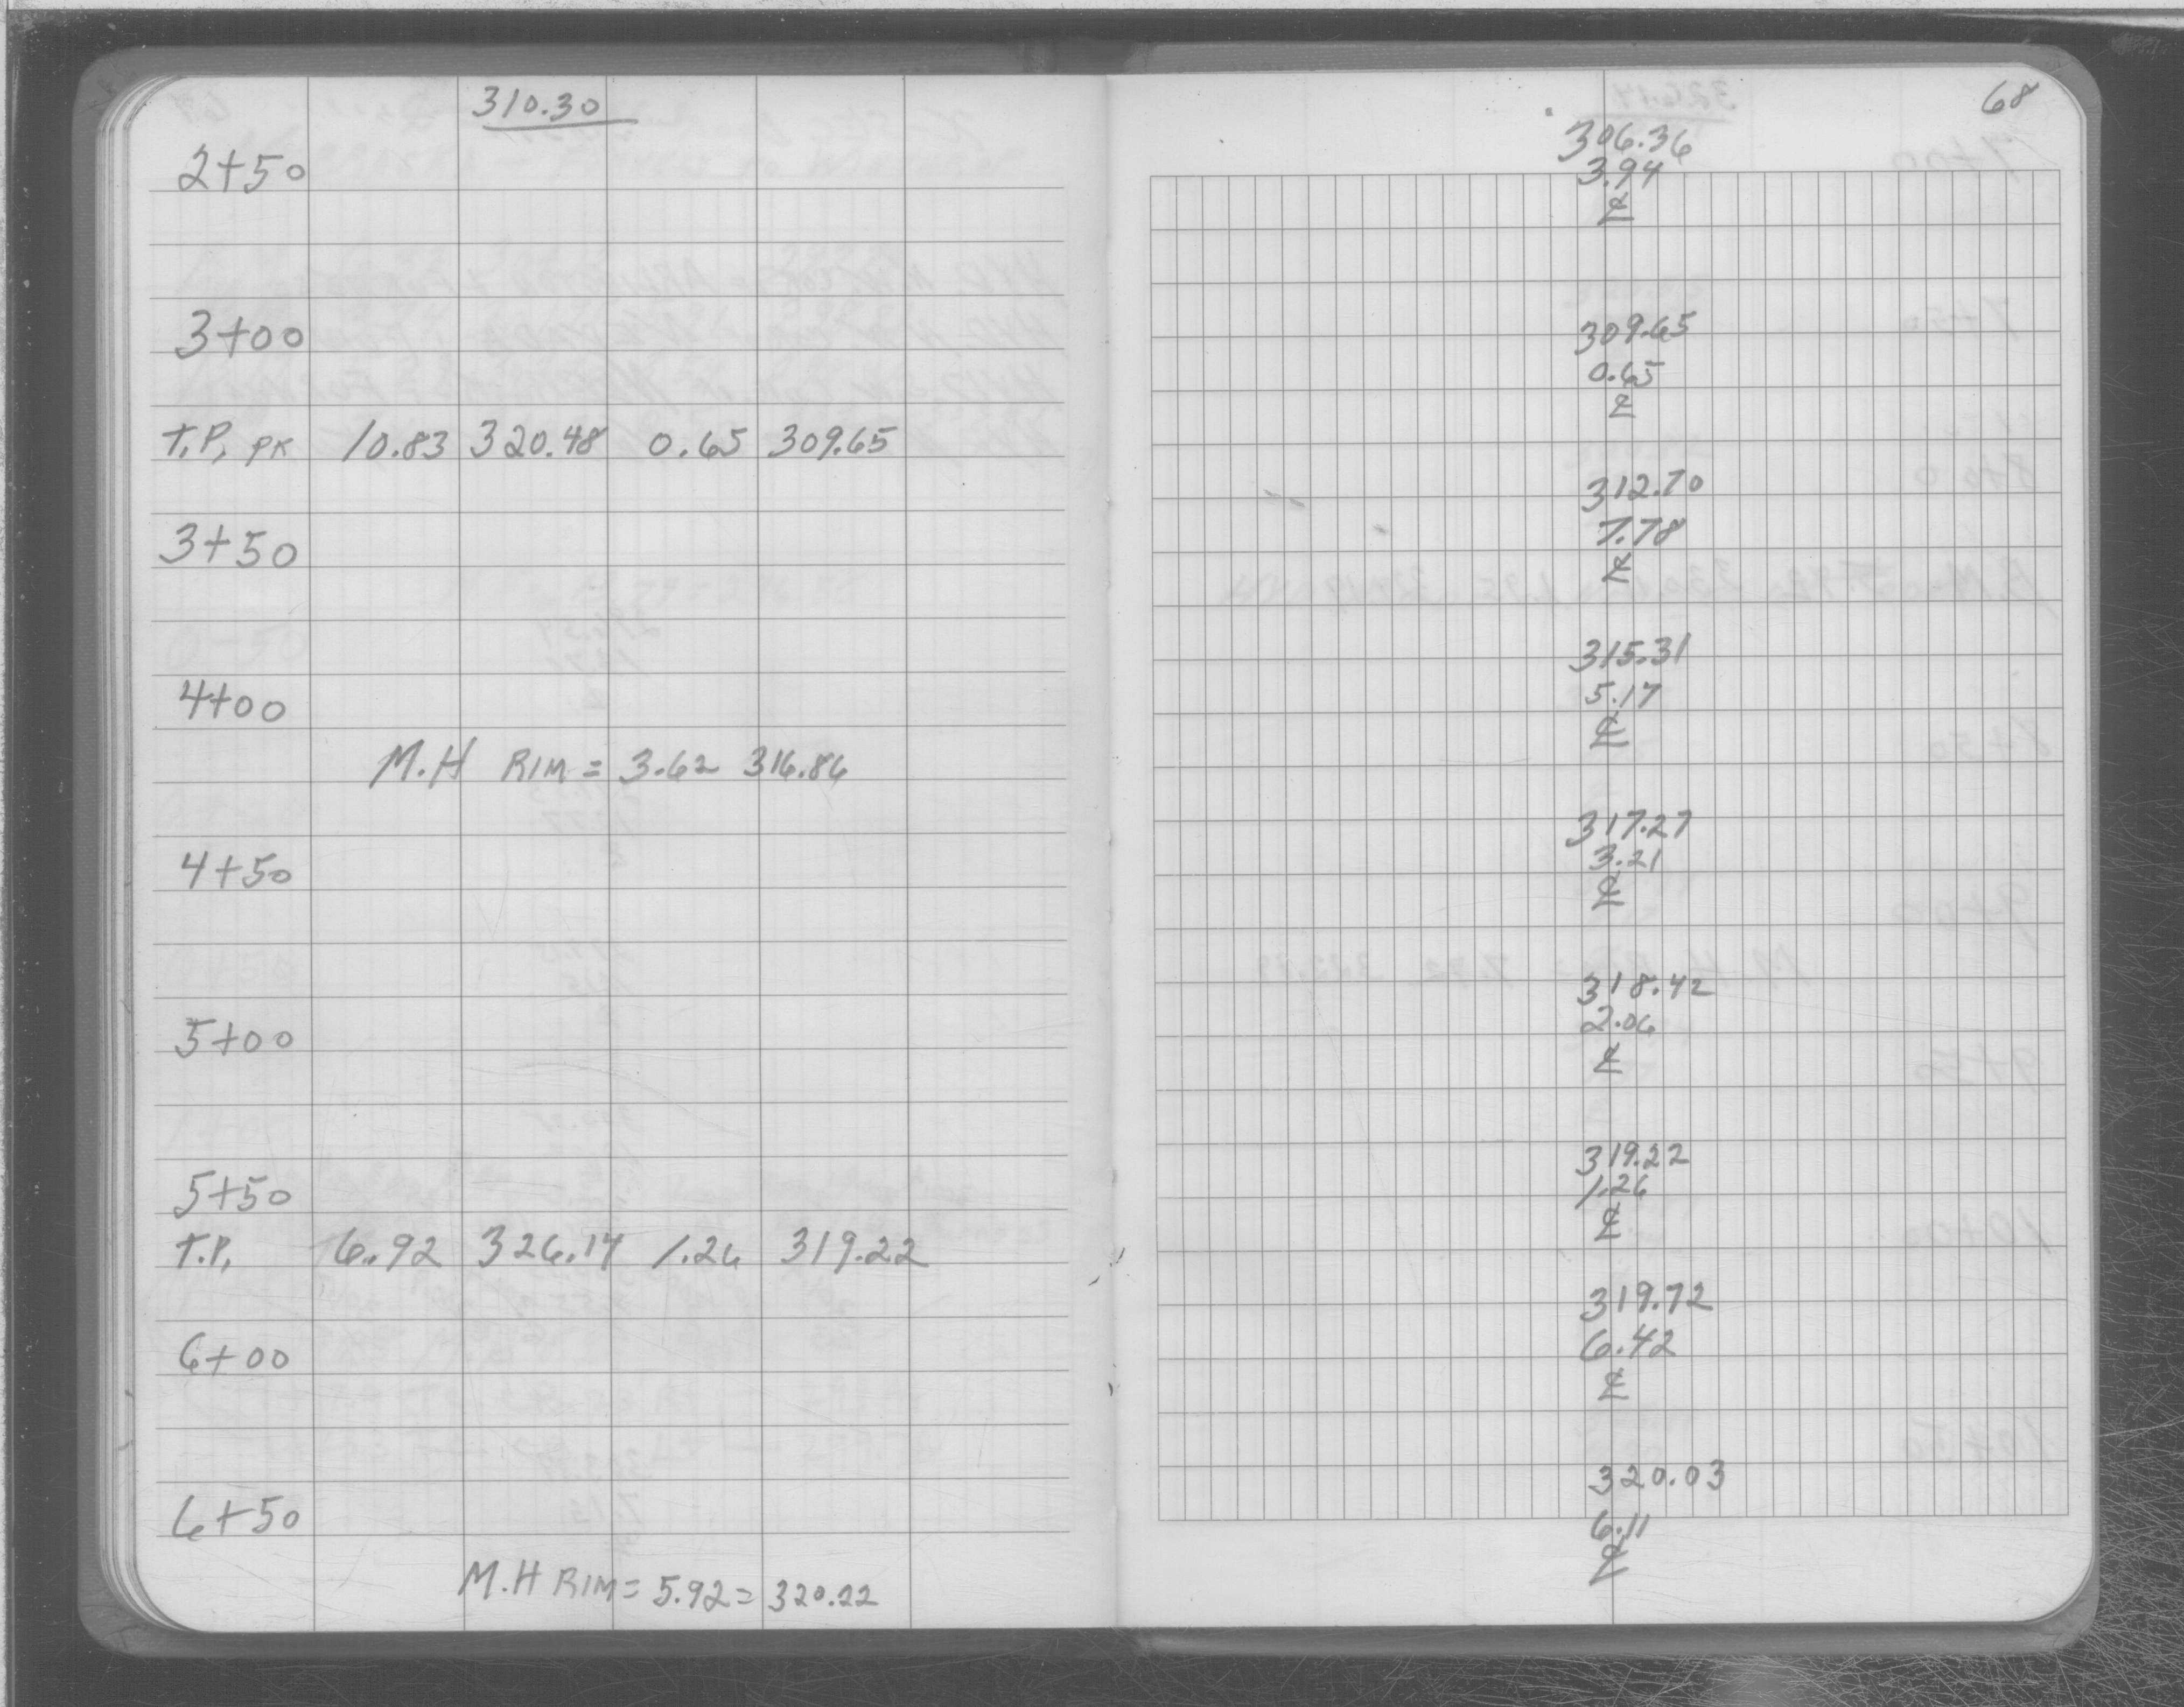 310.30
2+50
3+00
T.P. PK 10.83 320.48 0.65 309.65
3+50
4+00
M.H RIM = 3.62 316.86
4+50
5+00
5+50
T.P. 6.92 326.14 1.26 319.22
6+00
6+50
M.H RIM = 5.92 = 320.22
68
306.36
3.94
℄
309.65
0.65
℄
312.70
7.78
℄
315.31
5.17
℄
317.27
3.21
℄
318.42
2.06
℄
319.22
1.26
℄
319.72
6.42
℄
320.03
6.11
℄